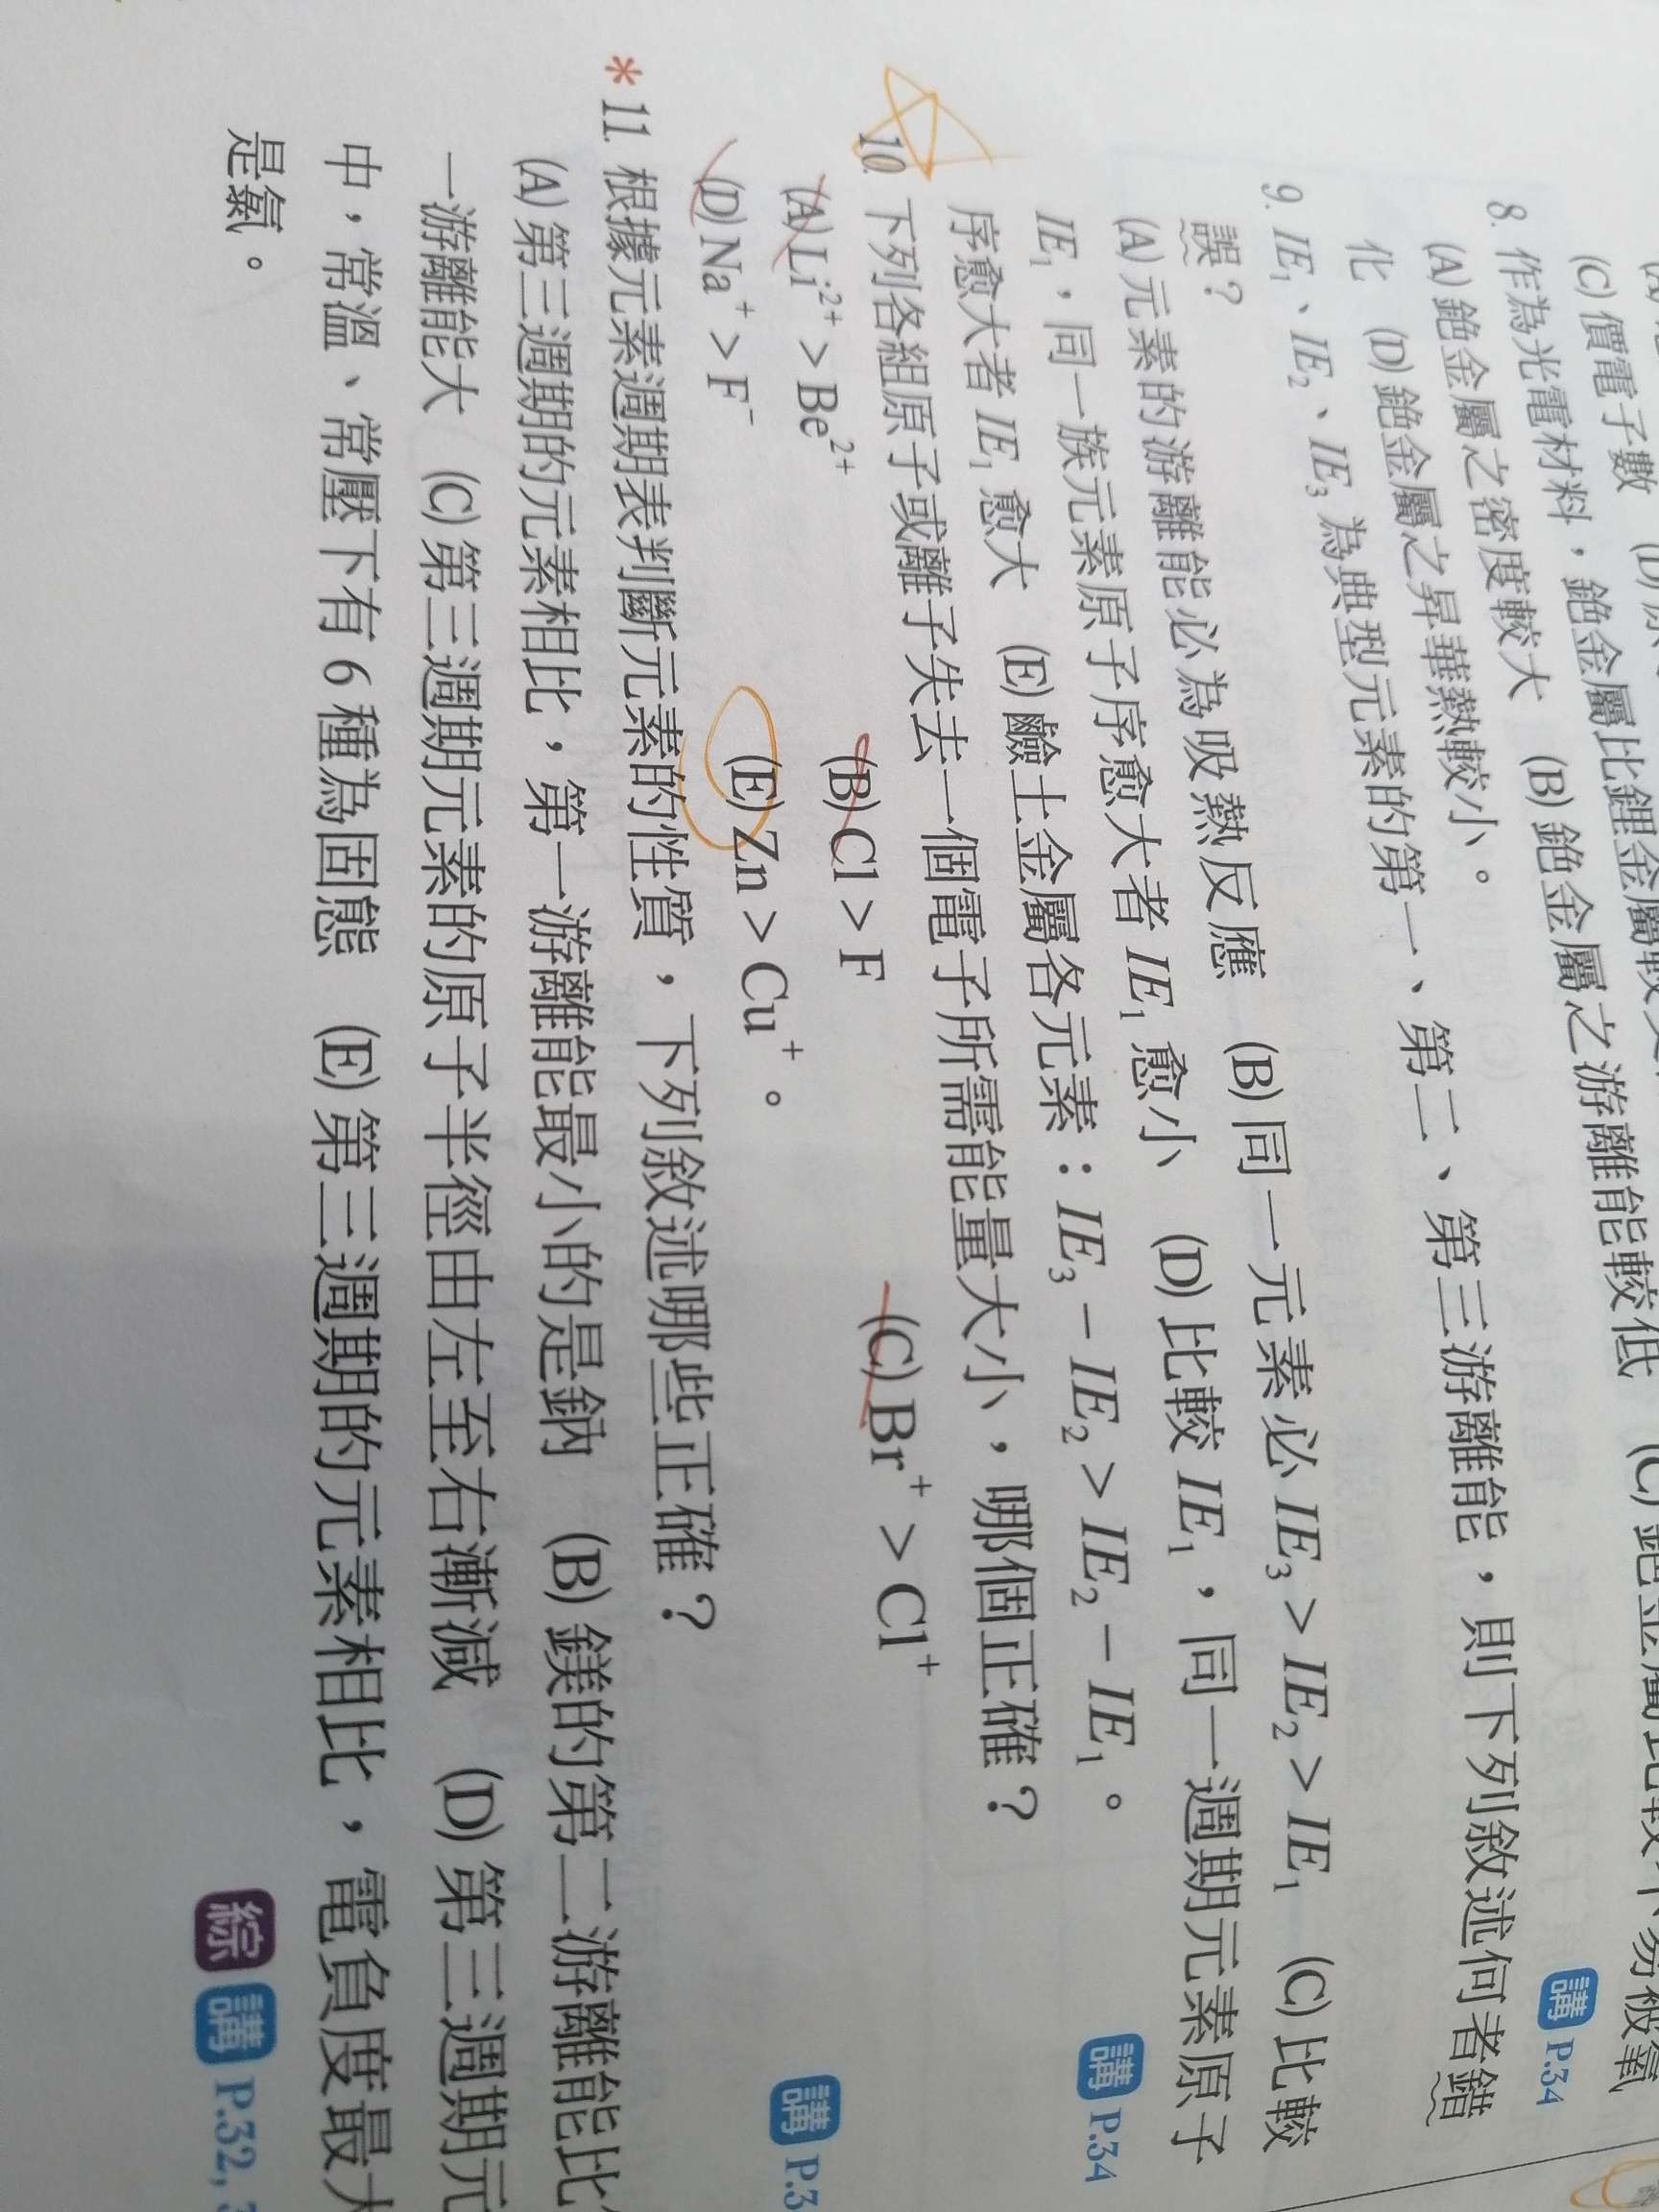 (C) 價電子數
8. 作為光電材料，銫金屬比鋰金屬較
(A) 銫金屬之密度較大 (B) 銫金屬之游離能較低
化 (D) 銫金屬之昇華熱較小。
講 P.34
9. IE₁、IE₂、IE₃ 為典型元素的第一、第二、第三游離能，則下列敘述何者錯
誤？
(A) 元素的游離能必為吸熱反應 (B) 同一元素必 IE₃ > IE₂ > IE₁ (C) 比較
IE₁，同一族元素原子序愈大者 IE₁ 愈小 (D) 比較 IE₁，同一週期元素原子
序愈大者 IE₁ 愈大 (E) 鹼土金屬各元素：IE₃ − IE₂ > IE₂ − IE₁。
講 P.34
10. 下列各組原子或離子失去一個電子所需能量大小，哪個正確？
(A) Li²⁺ > Be²⁺ (B) Cl > F (C) Br⁺ > Cl⁺
(D) Na⁺ > F⁻ (E) Zn > Cu⁺。
講 P.3
*11. 根據元素週期表判斷元素的性質，下列敘述哪些正確？
(A) 第三週期的元素相比，第一游離能最小的是鈉 (B) 鎂的第二游離能比
一游離能大 (C) 第三週期元素的原子半徑由左至右漸減 (D) 第三週期元
中，常溫、常壓下有 6 種為固態 (E) 第三週期的元素相比，電負度最大
是氯。
綜 講 P.32,